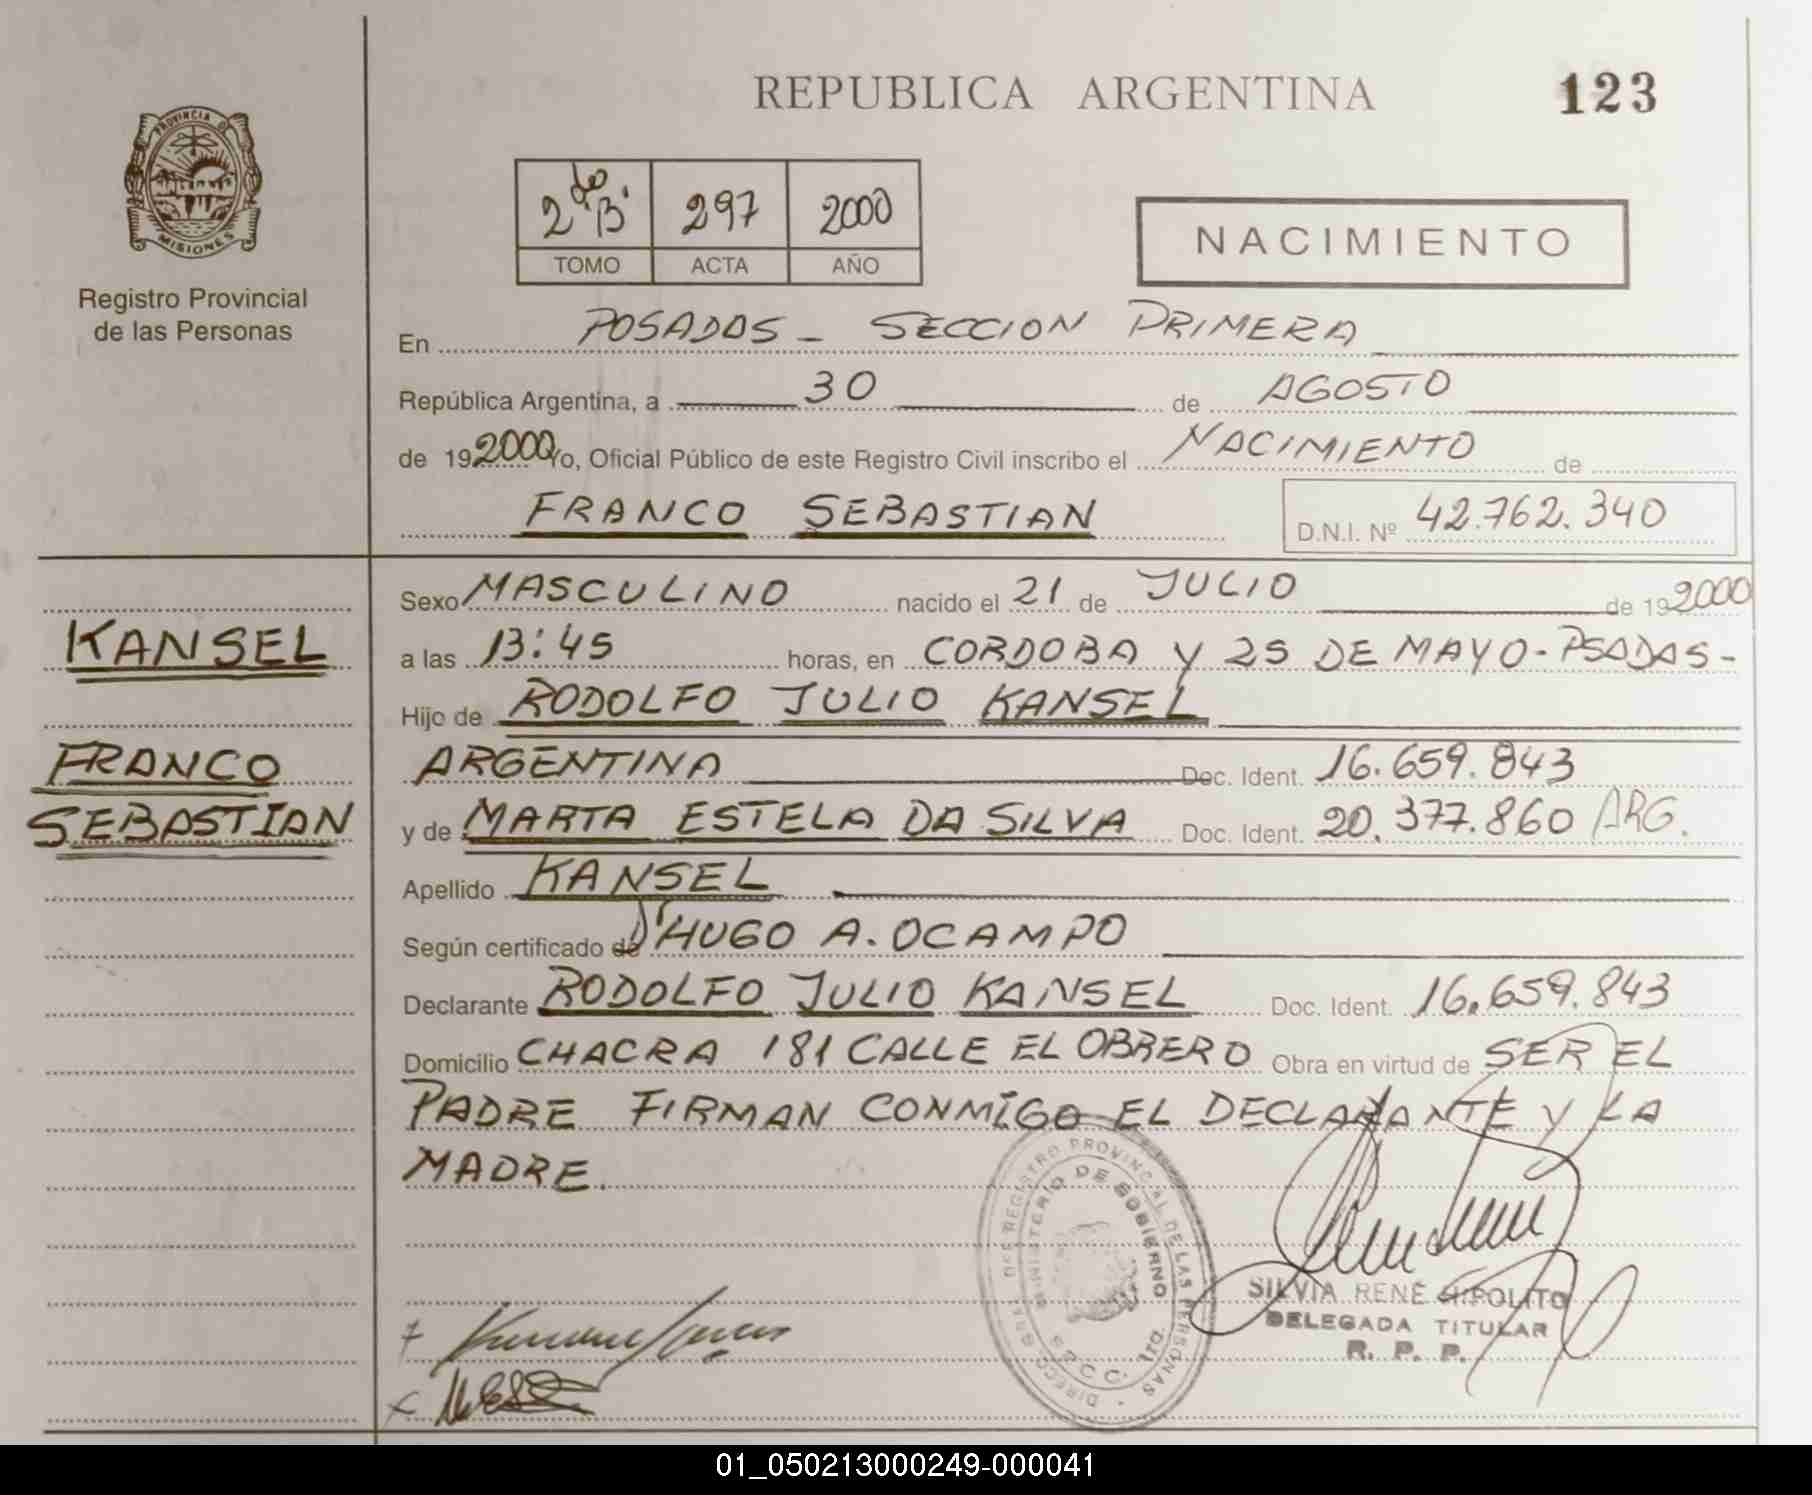 REPUBLICA ARGENTINA
123
PROVINCIA DE
MISIONES
Registro Provincial
de las Personas
2do B.
297
2000
TOMO
ACTA
AÑO
NACIMIENTO
En POSADAS - SECCION PRIMERA
República Argentina, a 30 de AGOSTO
de 192000 Yo, Oficial Público de este Registro Civil inscribo el NACIMIENTO de
FRANCO SEBASTIAN
D.N.I. Nº 42.762.340
Sexo MASCULINO nacido el 21 de JULIO de 192000
KANSEL
a las 13:45 horas, en CORDOBA Y 25 DE MAYO - PSADAS -
Hijo de RODOLFO JULIO KANSEL
FRANCO
SEBASTIAN
ARGENTINA Doc. Ident. 16.659.843
y de MARTA ESTELA DA SILVA Doc. Ident. 20.377.860 ARG.
Apellido KANSEL
Según certificado de HUGO A. OCAMPO
Declarante RODOLFO JULIO KANSEL Doc. Ident. 16.659.843
Domicilio CHACRA 181 CALLE EL OBRERO Obra en virtud de SER EL
PADRE FIRMAN CONMIGO EL DECLARANTE Y LA
MADRE.
REGISTRO PROVINCIAL DE LAS PERSONAS
MINISTERIO DE GOBIERNO
SILVIA RENE HIPOLITO
DELEGADA TITULAR
R. P. P.
01_050213000249-000041